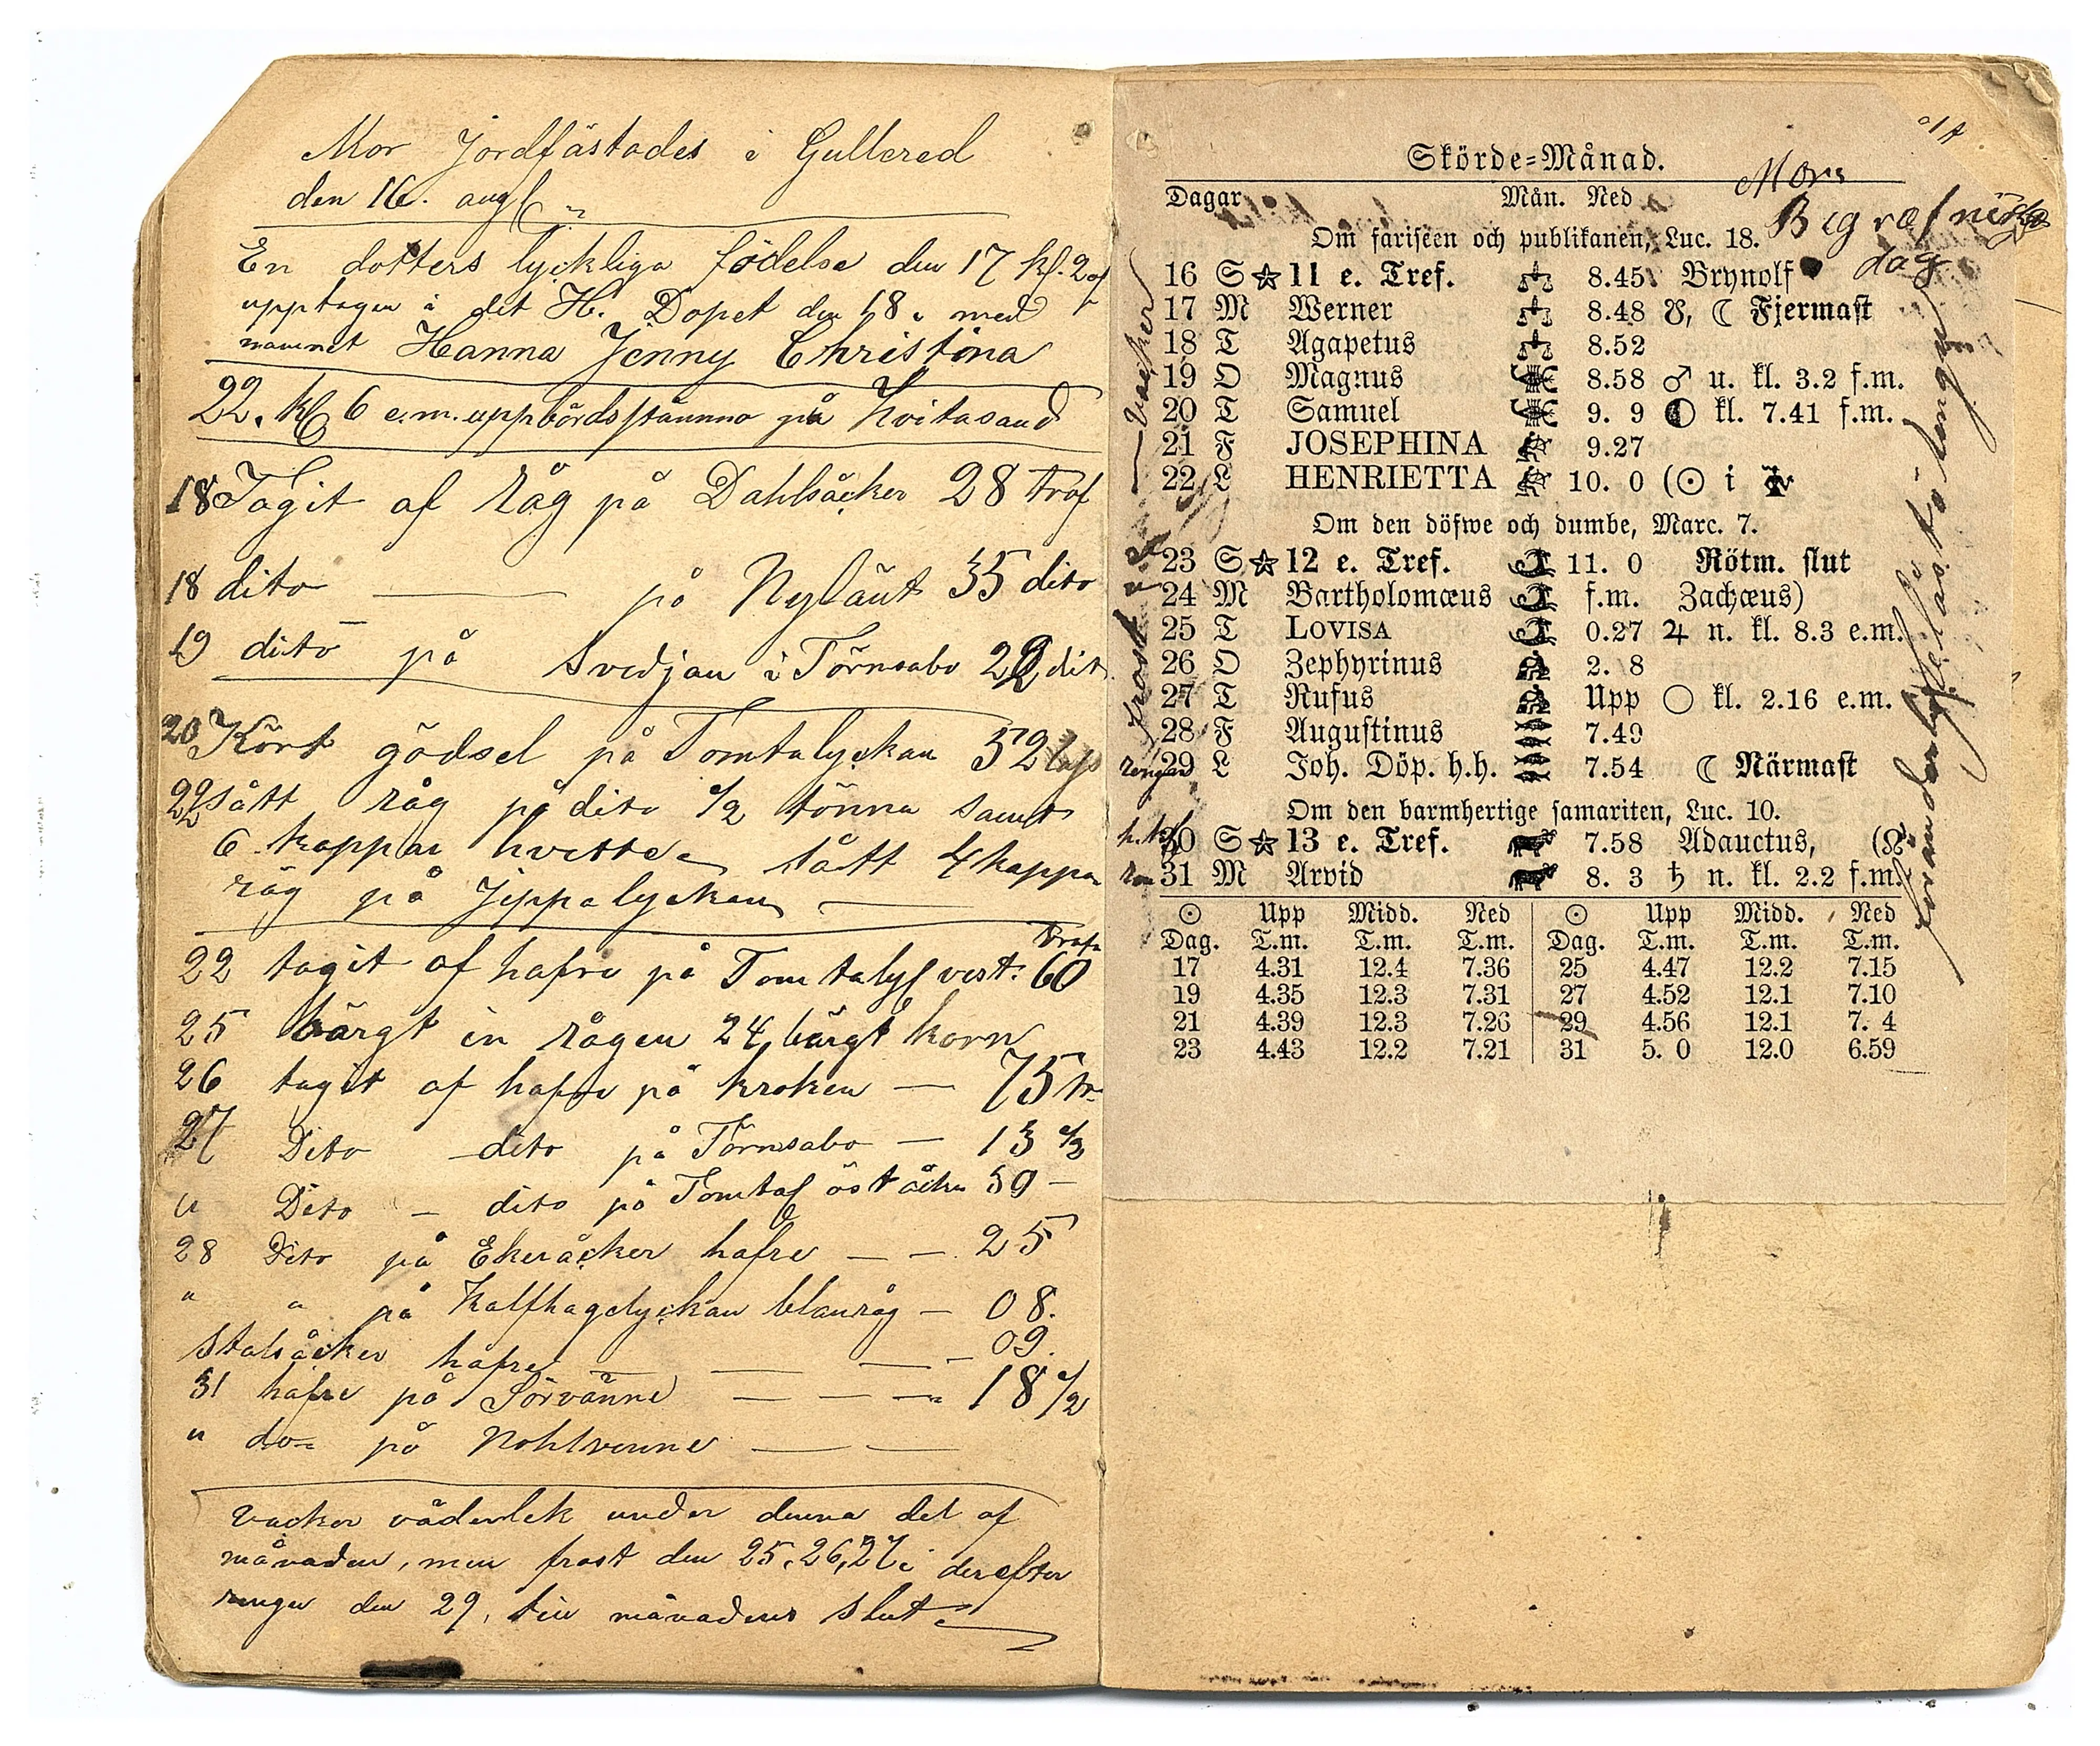 Mor Jordfästades i Gullered
den 16. aug
En dotters lyckliga födelse den 17 kl. 2 ef
upptagen i det H. Dopet den 18 med
namnet Hanna Jenny Christina
22. kl 6 e.m. uppbördsstämma på Hvitasand
18 Tagit af Råg på Dahlsåcker 28 traf
18 dito — på Nyläut 35 dito
19 dito på Svedjan i Törnsabo 22 dit
20 Kört gödsel på Tomtalyckan 52 lass
22 sått råg på dito 1/2 tönna samt
6 kappar hvette sått 4 kappar
råg på Jippalyckan —
trafv
22 tagit af hafre på Tomtalyc vest. 60
25 bärgt in rågen 24, bärgt korn
26 tagit af hafre på kroken — 75 tr
27 Dito dito på Törnsabo — 13 1/2
" Dito — dito på Tomtal öståcker 39 —
28 Dito på Ekeråcker hafre — — 25
" " på Kalfhagelyckan blanråg — 08.
Stalsåcker hafre — — — 09.
31 hafre på Sörvänne — — — 18 1/2
" do på Nohlvenne — —
vacker väderlek under denna del af
månaden, men frost den 25, 26, 27 i derefter
rengn den 29, till månadens slut
Skörde=Månad.
Mors
Begrafnings
dag
Dagar Mån. Ned
Om fariseen och publikanen, Luc. 18.
16 S ☆ 11 e. Tref. ♎ 8.45 Brynolf
17 M Werner ♎ 8.48 ☋, ☾ Fjermast
18 T Agapetus ♎ 8.52
19 O Magnus ♏ 8.58 ♂ u. kl. 3.2 f.m.
20 T Samuel ♏ 9. 9 ◐ kl. 7.41 f.m.
21 F JOSEPHINA ♐ 9.27
22 L HENRIETTA ♐ 10. 0 (☉ i ♍
Om den döfwe och dumbe, Marc. 7.
23 S ☆ 12 e. Tref. ♑ 11. 0 Rötm. slut
24 M Bartholomæus ♑ f.m. Zachæus)
25 T LOVISA ♑ 0.27 ♃ n. kl. 8.3 e.m.
26 O Zephyrinus ♒ 2. 8
27 T Rufus ♒ Upp ○ kl. 2.16 e.m.
28 F Augustinus ♓ 7.49
29 L Joh. Döp. h.h. ♓ 7.54 ☾ Närmast
Om den barmhertige samariten, Luc. 10.
30 S ☆ 13 e. Tref. ♉ 7.58 Adauctus, (☊
31 M Arvid ♉ 8. 3 ♄ n. kl. 2.2 f.m.
☉ Upp Midd. Ned ☉ Upp Midd. Ned
Dag. T.m. T.m. T.m. Dag. T.m. T.m. T.m.
17 4.31 12.4 7.36 25 4.47 12.2 7.15
19 4.35 12.3 7.31 27 4.52 12.1 7.10
21 4.39 12.3 7.26 29 4.56 12.1 7. 4
23 4.43 12.2 7.21 31 5. 0 12.0 6.59
vacker
frost
rengn